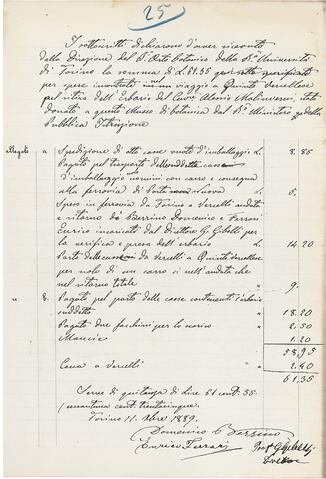 25
I sottoscritti dichiarono d'aver ricevuto
dalla Direzione del R.° Orto Botanico della R.ª Università
di Torino la somma di L. 61.35 qui sotto specificate
per spese incontrate in un viaggio a Quinto Vercellese
pel ritiro dell'Erbario del Cav. Alessio Malinverni, stato
donato a questo Museo di botanica dal R.° Ministero della
Pubblica Istruzione
allegato a Spedizione di otto casse vuote d'imballaggio L. 8.85
Pagato pel trasporto delle suddette casse
d'imballaggio uomini con carro e consegna
alla ferrovia di Porta nuova L. 6.
Speso in ferrovia da Torino a Vercelli andata
e ritorno da Berrino Domenico e Ferrari
Enrico incaricati dal Direttore G. Gibelli per
la verifica e presa dell'erbario L. 14.20
Porto delle casse da Vercelli a Quinto Vercellese
per nolo di un carro sì nell'andata che
nel ritorno totale " 9.
" B. Pagato pel porto delle casse contenenti l'erbario
suddetto " 18.20
Pagato due facchini per lo scarico " 2.50
Mancie " 1.20
58.95
Cena a Vercelli " 2.40
61.35
Serve di quitanza di Lire 61 cent. 35
(sessantuna cent. trentacinque.
Torino 11. 9bre 1889.
Domenico Berrino
Enrico Ferrari
Prof G Gibelli
Direttore